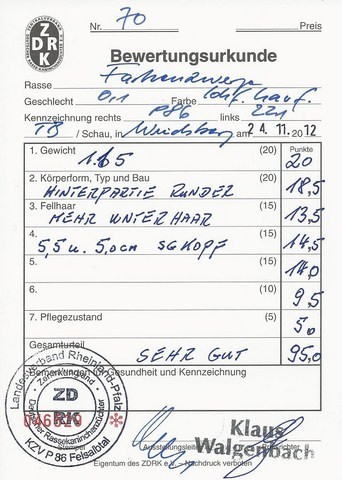 ZENTRALVERBAND
ZDRK
Nr. 70 Preis
Bewertungsurkunde
Rasse Farbenzwerge
Geschlecht 0,1 Farbe
Kennzeichnung rechts P86 links 224
TB / Schau, in am 24. 11. 2012
1. Gewicht (20) Punkte
1.15 20
2. Körperform, Typ und Bau (20)
HINTERPARTIE RUNDER 18,5
3. Fellhaar (15)
MEHR UNTERHAAR 13,5
4. (15)
5,5 u. 5,0cm SG KOPF 14,5
5. (15)
14,0
6. (10)
9,5
7. Pflegezustand (5)
5,0
Gesamturteil
SEHR GUT 95,0
Bemerkungen zu Gesundheit und Kennzeichnung
Landesverband Rheinland-Pfalz
Zentralverband
ZD
RK
Deutscher Rassekaninchenzüchter
KZV P 86 Felsalbtal
Stempel
Klaus
Walgenbach
Ausstellungsleitung
Eigentum des ZDRK e.V. – Nachdruck verboten